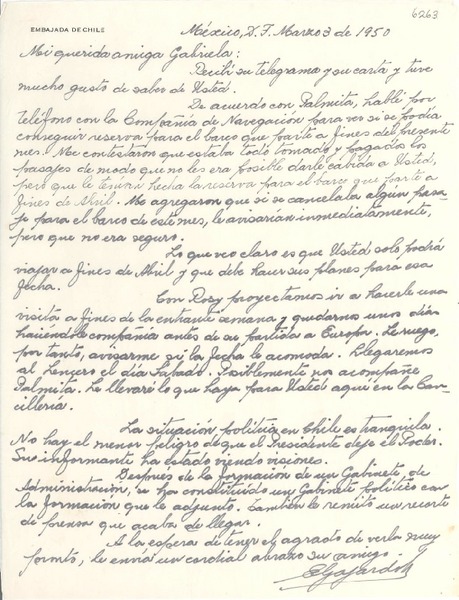 6263
EMBAJADA DE CHILE
México, D.F. Marzo 3 de 1950
Mi querida amiga Gabriela:
Recibí su telegrama y su carta y tuve
mucho gusto de saber de Usted.
De acuerdo con Palmita, hablé por
teléfono con la Compañía de Navegación para ver si se podía
conseguir reserva para el barco que parte a fines del presente
mes. Me contestaron que estaba todo tomado y pagados los
pasajes de modo que no les era posible darle cabida a Usted,
pero que le tenían hecha la reserva para el barco que parte a
fines de Abril. Me agregaron que si se cancelaba algún pasa-
je para el barco de este mes, le avisarían inmediatamente,
pero que no era seguro.
Lo que veo claro es que Usted solo podrá
viajar a fines de Abril y que debe hacer sus planes para esa
fecha.
Con Rosy proyectamos ir a hacerle una
visita a fines de la entrante semana y quedarnos unos días
haciéndole compañía antes de su partida a Europa. Le ruego,
por tanto, avisarme si la fecha le acomoda. Llegaremos
al Lencero el día Sábado. Posiblemente nos acompañe
Palmita. Le llevaré lo que haya para Usted aquí en la Can-
cillería.
La situación política en Chile es tranquila.
No hay el menor peligro de que el Presidente deje el Poder.
Su informante ha estado viendo visiones.
Después de la formación de un Gabinete de
Administración, se ha constituido un Gabinete político con
la formación que le adjunto. También le remito un recorte
de prensa que acaba de llegar.
A la espera de tener el agrado de verla muy
pronto, le envía un cordial abrazo su amigo.
EGajardoR